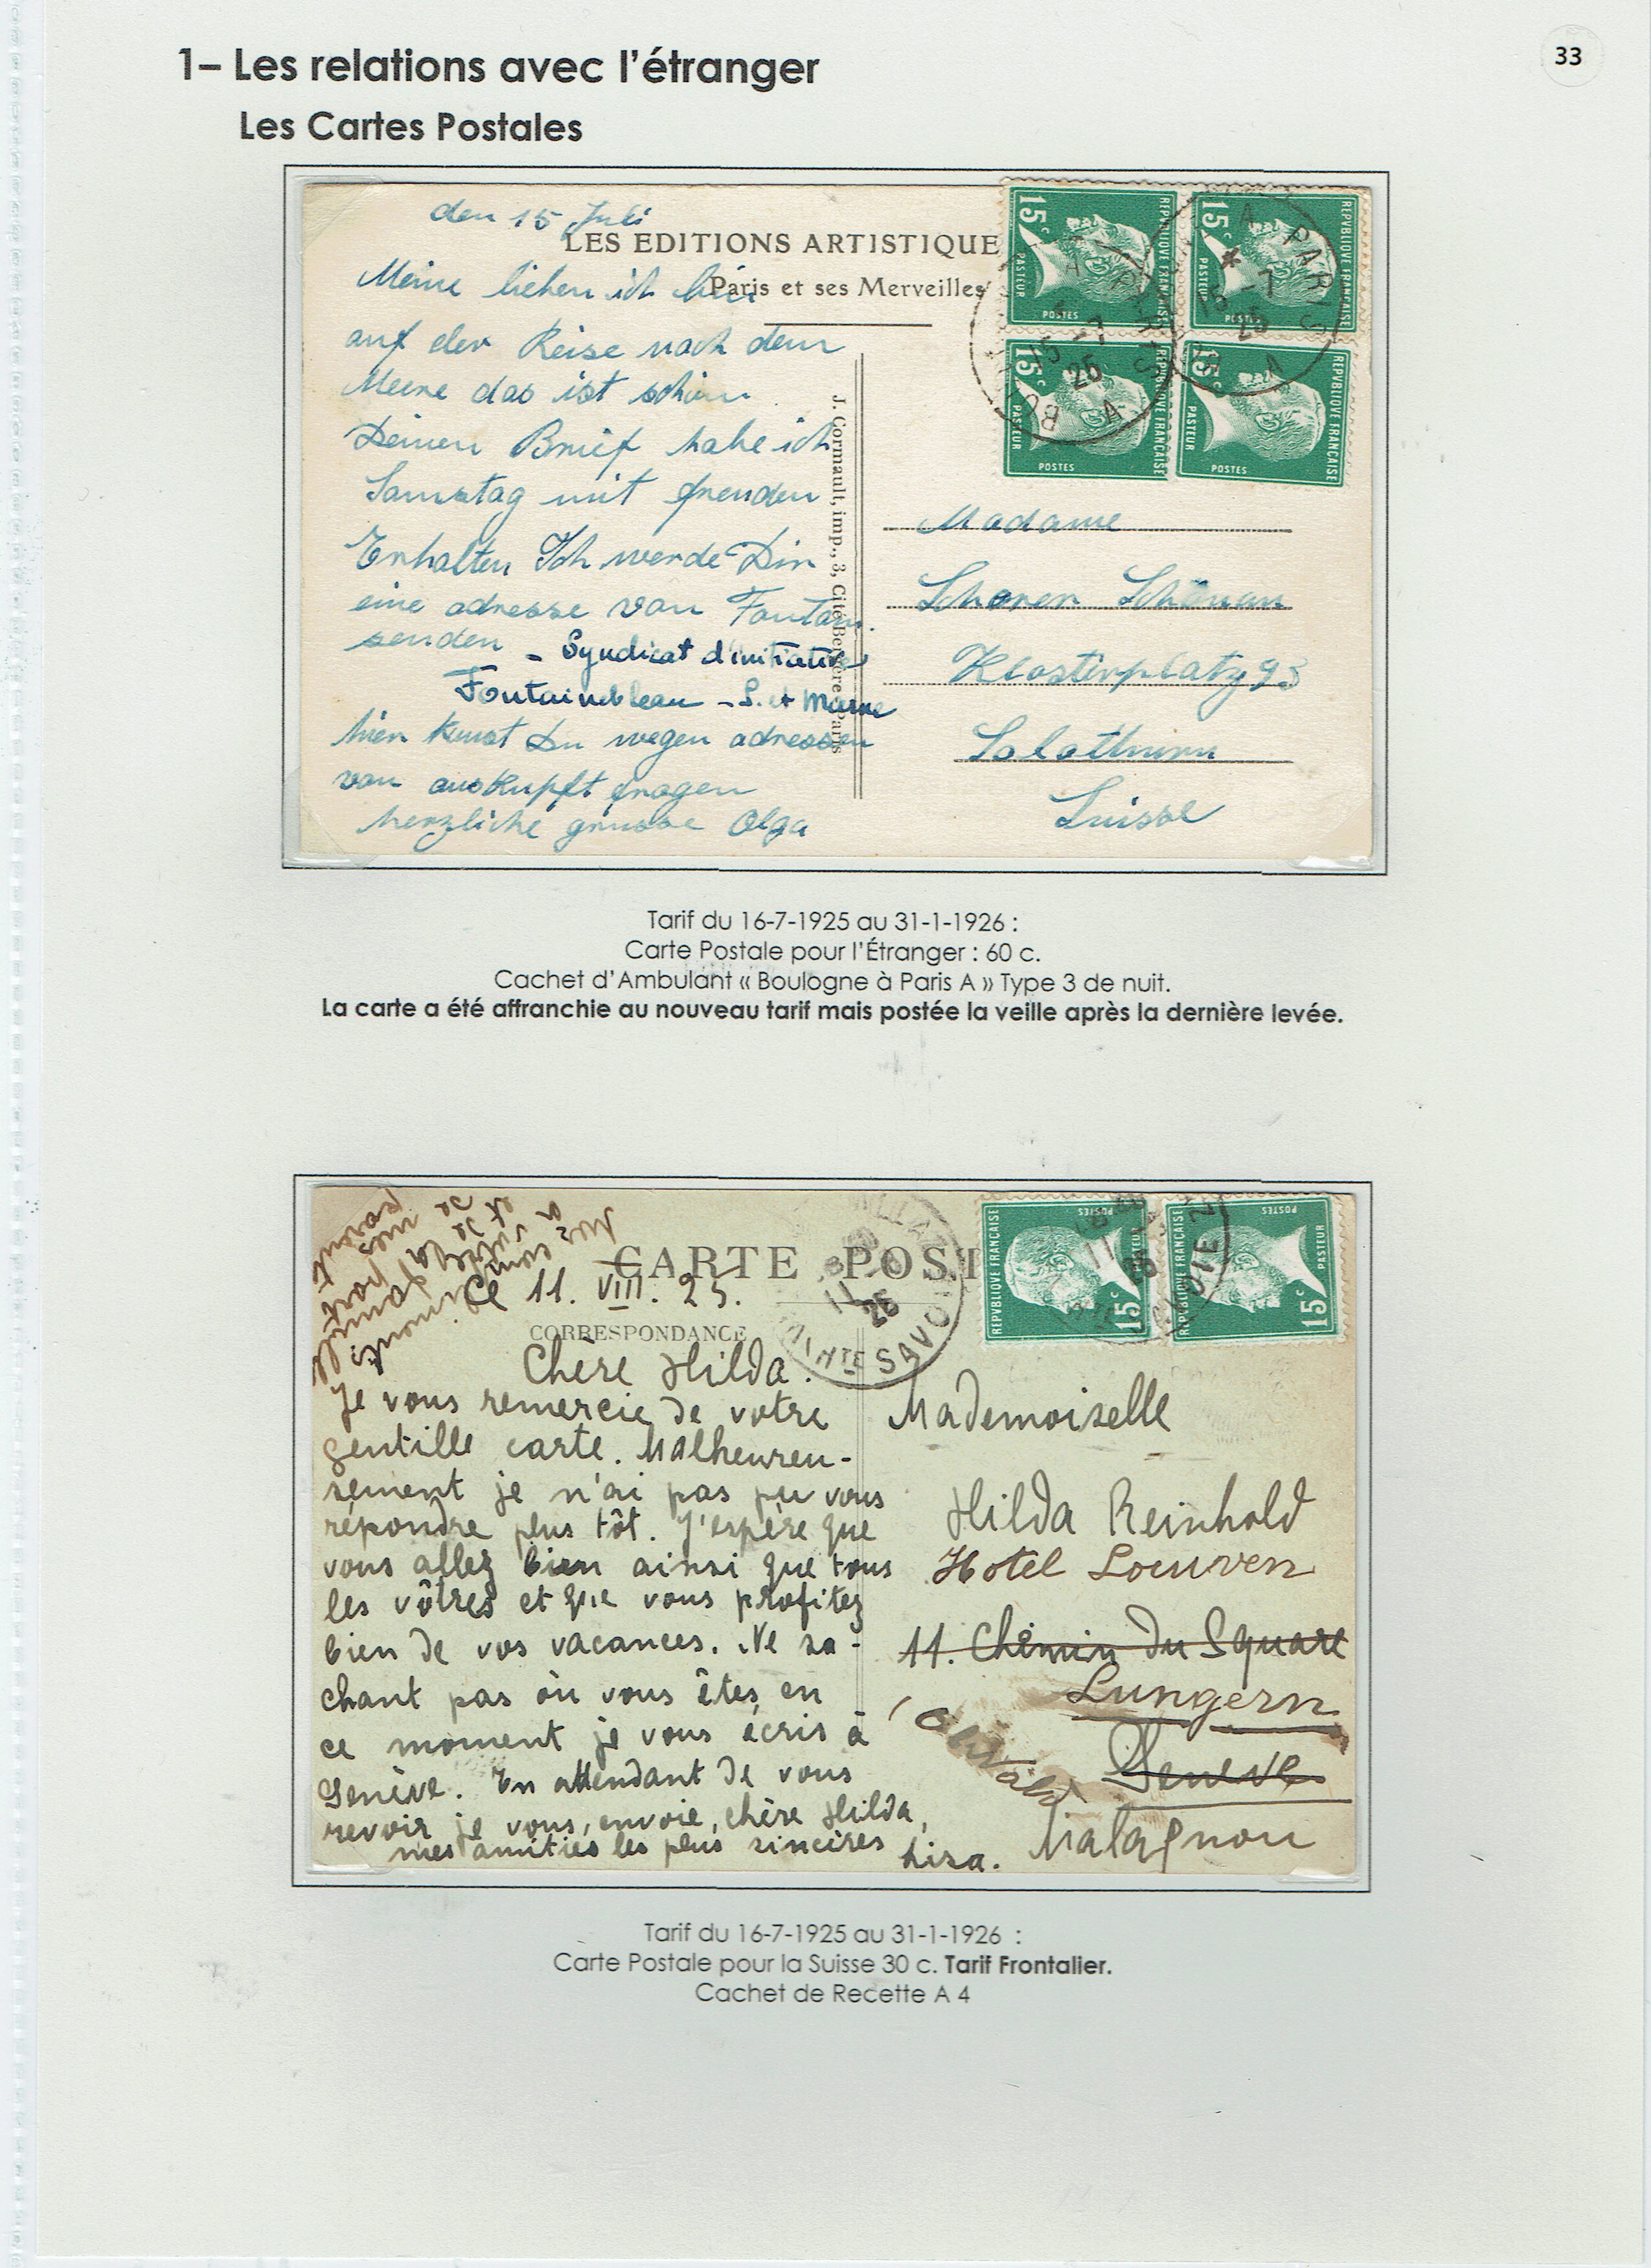 1– Les relations avec l'étranger
33
Les Cartes Postales
den 15 Juli
LES EDITIONS ARTISTIQUE
Paris et ses Merveilles
Meine lieben ich bin
auf der Reise nach dem
Meere das ist schön
Deinen Brief habe ich
Samstag mit freuden
Erhalten Ich werde Dir
eine adresse von Fontain.
senden - Syndicat d'initiative
Fontainebleau - S. et Marne
hier kanst Du wegen adressen
von auskupft fragen
herzliche grüsse Olga
J. Cormault, imp., 3, Cité Bergère, Paris
15c REPVBLIQVE FRANÇAISE PASTEUR POSTES
15c REPVBLIQVE FRANÇAISE PASTEUR POSTES
15c REPVBLIQVE FRANÇAISE PASTEUR POSTES
15c REPVBLIQVE FRANÇAISE PASTEUR POSTES
A PARIS
15 -7
25
A PARIS
15 -7
25
Madame
Schoren Schönau
Klosterplatz 93
Solothurn
Suisse
Tarif du 16-7-1925 au 31-1-1926 :
Carte Postale pour l'Étranger : 60 c.
Cachet d'Ambulant « Boulogne à Paris A » Type 3 de nuit.
La carte a été affranchie au nouveau tarif mais postée la veille après la dernière levée.
CARTE POST
CORRESPONDANCE
Ce 11. VIII. 25.
Chère Hilda.
Je vous remercie de votre
gentille carte. Malheureu-
sement je n'ai pas pu vous
répondre plus tôt. J'espère que
vous allez bien ainsi que tous
les vôtres et que vous profitez
bien de vos vacances. Ne sa-
chant pas où vous êtes en
ce moment je vous écris à
Genève. En attendant de vous
revoir je vous envoie, chère Hilda,
mes amitiés les plus sincères
Lisa.
HTE SAVOIE
11
25
REPVBLIQVE FRANÇAISE 15c PASTEUR POSTES
REPVBLIQVE FRANÇAISE 15c PASTEUR POSTES
Mademoiselle
Hilda Reinhold
Hotel Loewen
11. Chemin du Square
Lungern
(Obwald)
Genève
Malagnou
Tarif du 16-7-1925 au 31-1-1926 :
Carte Postale pour la Suisse 30 c. Tarif Frontalier.
Cachet de Recette A 4